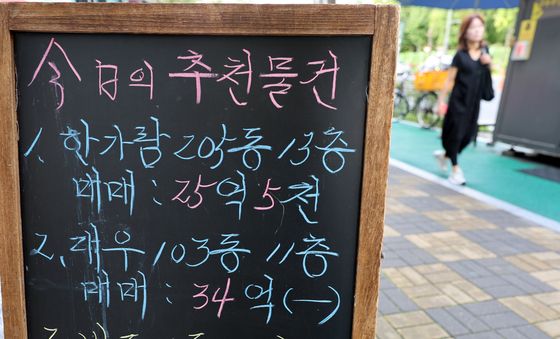 今日의 추천물건
1. 한가람 2악동 13층
매매 : 25억 5천
2. 대우 103동 11층
매매 : 34억 (一)